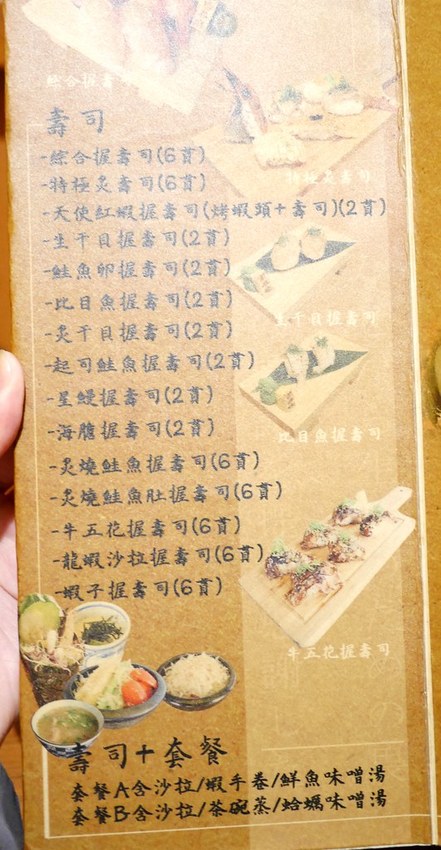 綜合握壽司
壽司
-綜合握壽司(6貫)
-特極炙壽司(6貫)
特極炙壽司
-天使紅蝦握壽司(烤蝦頭+壽司)(2貫)
-生干貝握壽司(2貫)
-鮭魚卵握壽司(2貫)
-比目魚握壽司(2貫)
生干貝握壽司
-炙干貝握壽司(2貫)
-起司鮭魚握壽司(2貫)
-星鰻握壽司(2貫)
-海膽握壽司(2貫)
比目魚握壽司
-炙燒鮭魚握壽司(6貫)
-炙燒鮭魚肚握壽司(6貫)
-牛五花握壽司(6貫)
-龍蝦沙拉握壽司(6貫)
-蝦子握壽司(6貫)
牛五花握壽司
壽司+套餐
套餐A含沙拉/蝦手卷/鮮魚味噌湯
套餐B含沙拉/茶碗蒸/蛤蠣味噌湯